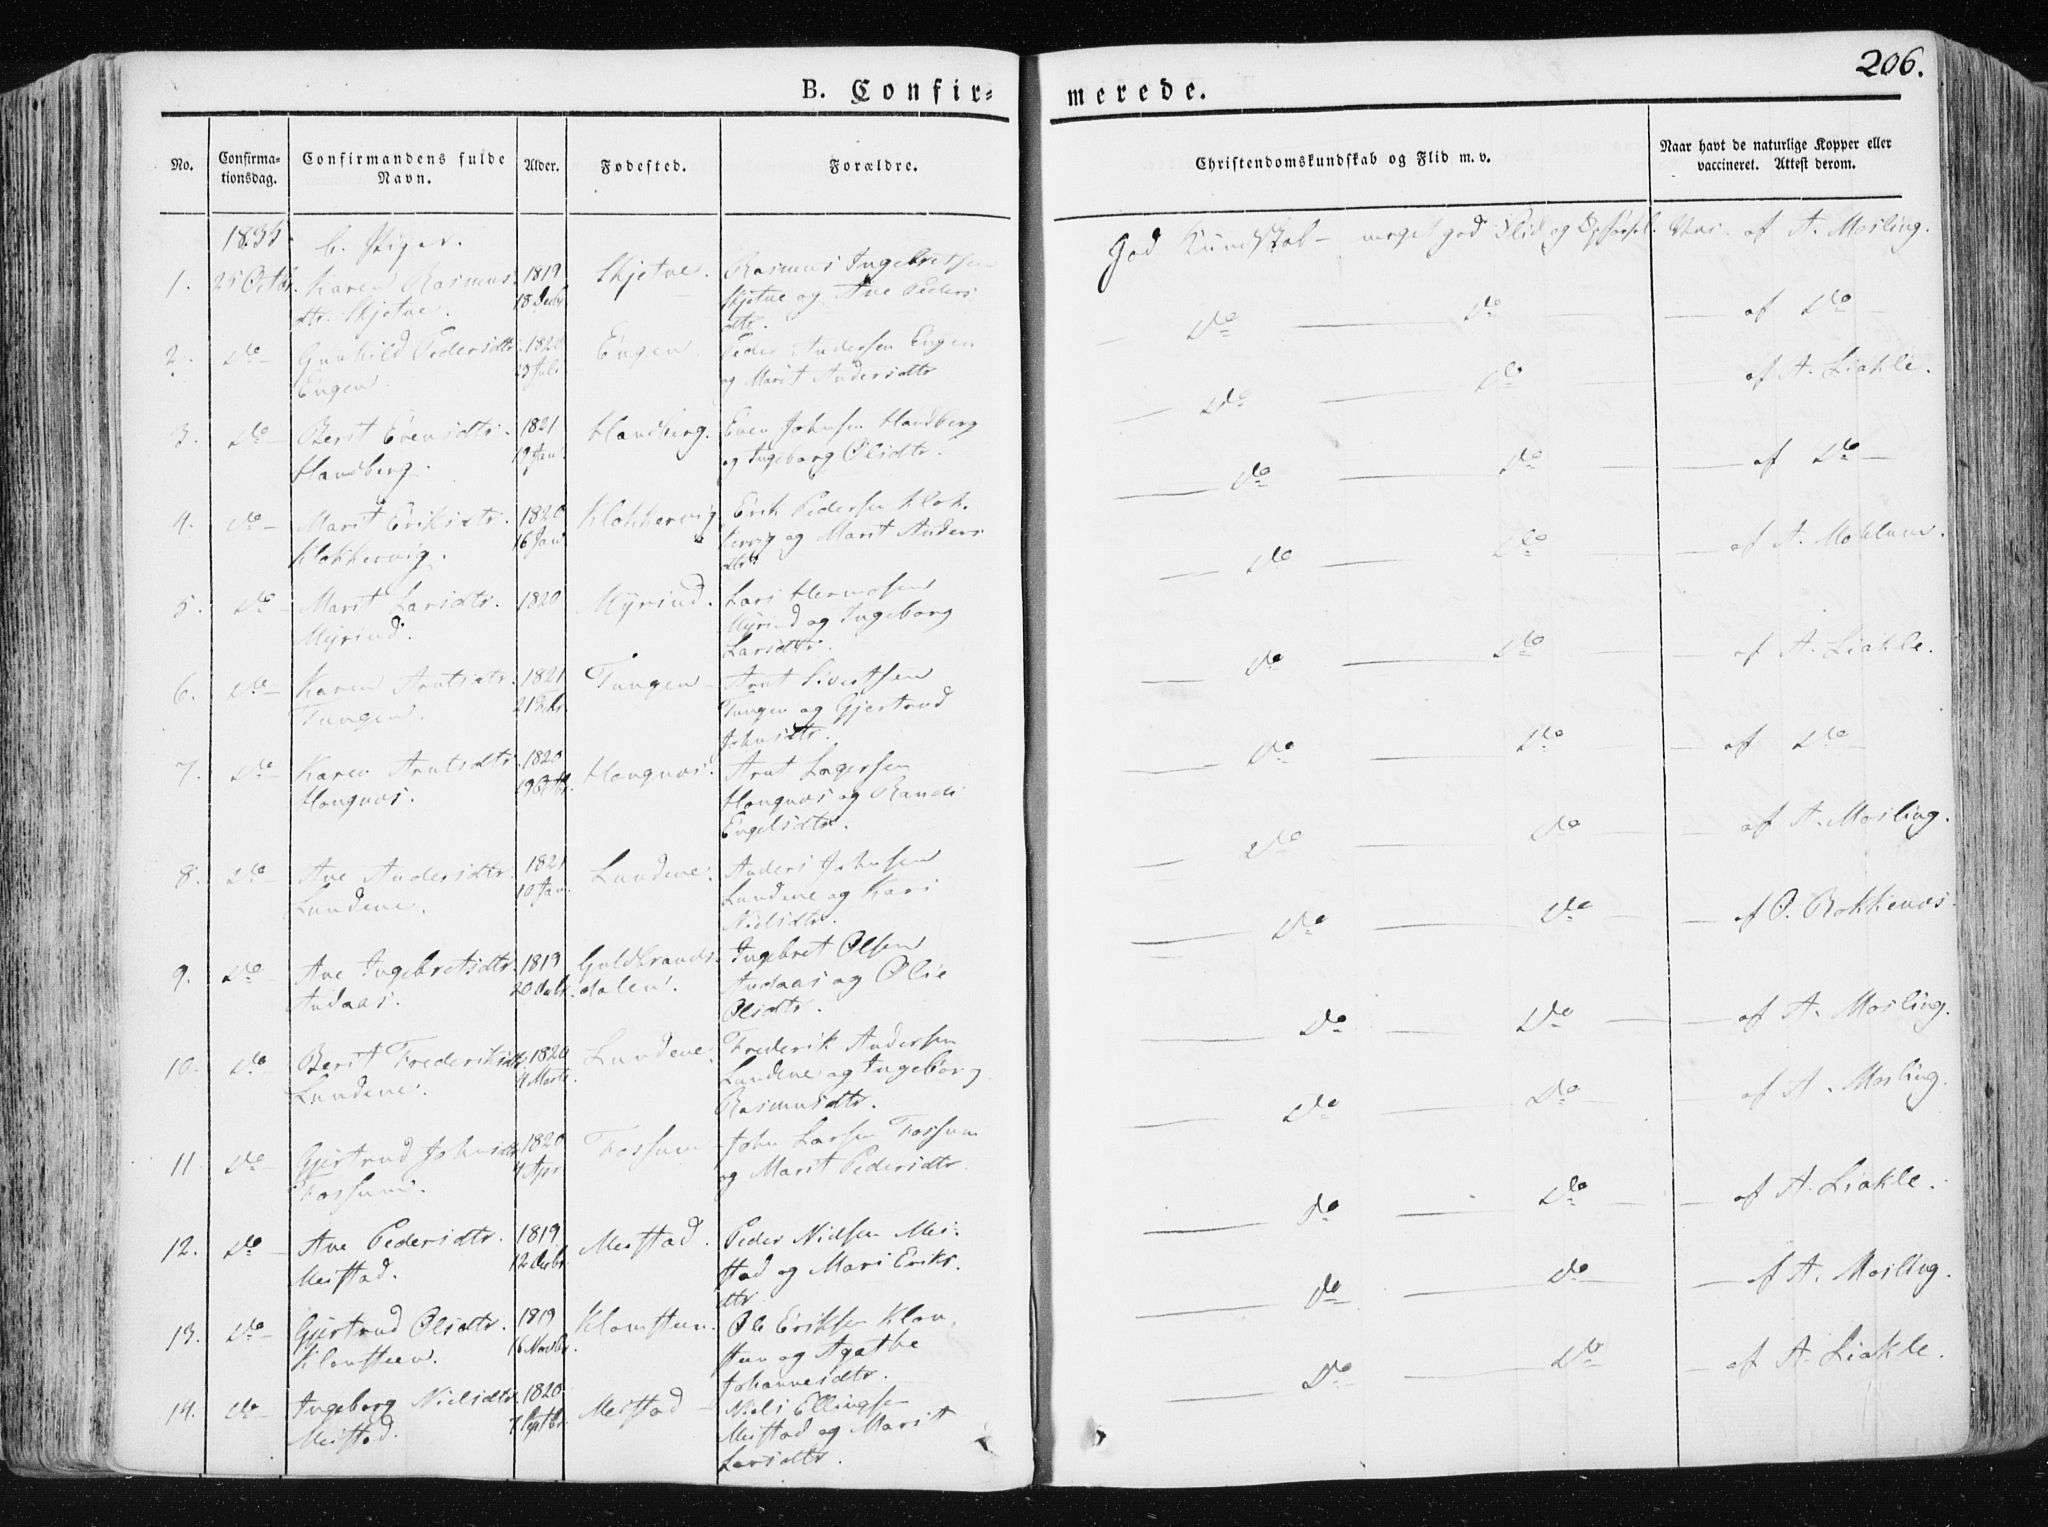 206.
B. Confir-
merede.
No.
Confirma-
tionsdag.
Confirmandens fulde
Navn.
Alder.
Fødested.
Forældre.
Christendomskundskab og Flid m. v.
Naar havt de naturlige Kopper eller
vaccineret. Attest derom.
1835. b. Piger.
1. 25 Octbr. Karen Rasmus- 1819 Skjetne. Rasmus Ingebretsen
dtr. Skjetne. 18 Decbr Skjetne og Ane Peders-
dtr.
God Kundskab - meget god Flid og Opførsel. Vac. af A. Mosling.
2. Do Gunhild Pedersdtr. 1820 Engen Peder Andersen Engen
Engen 23 Juli og Marit Andersdtr
Do Do af Do
3. Do Berit Evensdtr. 1821 Handberg. Even Johnsen Handberg
Handberg. 19 Jan. og Ingeborg Olsdtr.
Do Do af A. Liakle.
4. Do Marit Eriksdtr. 1820 Klokkervig Erik Pedersen Klok-
Klokkervig. 16 Jan kervig og Marit Anders
dtr.
Do Do af Do
5. Do Marit Larsdtr. 1820 Myrind. Lars Hermosen
Myrind. Myrind og Ingeborg
Larsdtr.
Do Do af A. Moklum.
6. Do Karen Arntsdtr. 1821 Tungen Arnt Sivertsen
Tungen. 21 Febr. Tungen og Gjertrud
Johnsdtr.
Do Do af A. Liakle.
7. Do Karen Arntsdtr. 1820 Hongnæs. Arnt Lagersen
Hongnæs. 19 Octbr. Hongnæs og Randi
Engelsdtr.
Do Do af Do
8. Do Ane Andersdtr. 1821 Lundene. Anders Johnsen
Lundene. 10 Jan. Lundene og Kari
Nielsdtr.
Do Do af A. Mosling.
9. Do Ane Ingebretsdtr. 1819 Guldbrands- Ingebret Olsen
Andaas. 20 dalen. Andaas og Olie
Olsdtr.
Do Do af O. Rokkenæs.
10. Do Berit Frederiksdtr. 1820 Lundene. Frederik Andersen
Lundene. 4 Marts. Lundene og Ingeborg
Rasmusdtr.
Do Do af A. Mosling.
11 Do Gjertrud Johnsdtr 1820 Fossum John Larsen Fossum
Fossum. 4 Apr. og Marit Pedersdtr.
Do Do af A. Mosling.
12. Do Ane Pedersdtr. 1819 Meistad. Peder Nielsen Mei-
Meistad. 12 Decbr. stad og Mari Eriks-
dtr.
Do Do af A. Liakle.
13. Do Gjertrud Olsdtr. 1819 Klomsteen. Ole Eriksen Klom-
Klomsteen. 16 Novbr. steen og Agathe
Johannesdtr.
Do Do af A. Mosling.
14. Do Ingeborg Nielsdtr. 1820 Meistad Niels Ellingsen
Meistad. 7 Septbr. Meistad og Marit
Larsdtr.
Do Do af A. Liakle.